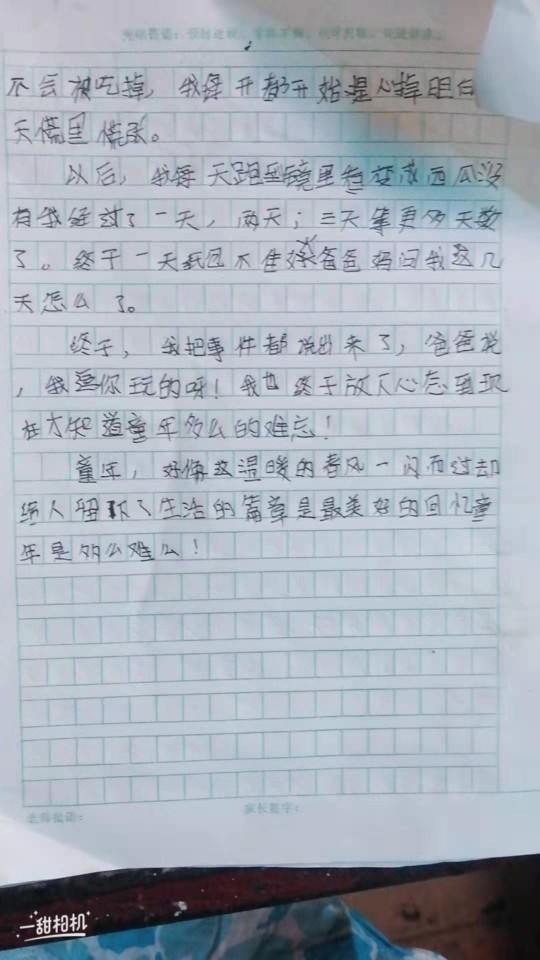 不会被吃掉，我每天都开始提心掉明白
天慌里慌张。
以后，我每天跑到镜里看变成西瓜没
有我经过了一天，两天；三天等更多天数
了。终于一天我忍不住好爸爸妈问我这几
天怎么了。
终于，我把事件都说出来了，爸爸说
，我逗你玩的呀！我也终于放下心态到现
在才知道童年多么的难忘！
童年，好像这温暖的春风一闪而过却
给人留下了生活的篇章是最美好的回忆童
年是多么难么！
老师批语：
家长签字：
一甜相机